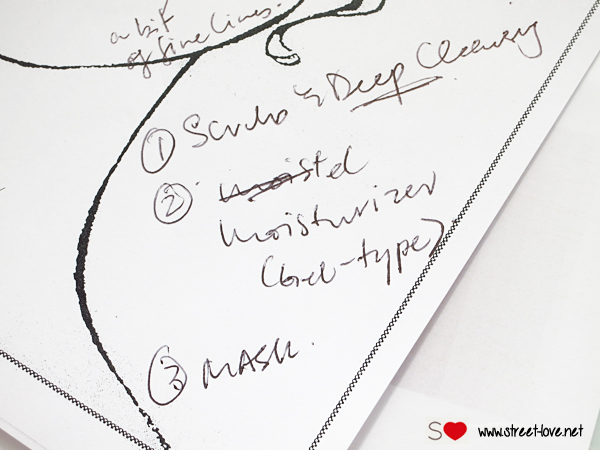 a bit
of fine lines.
① Scrubs & Deep Cleansing
②
Moisturizer
(Gel-type)
③ MASK.
S
www.street-love.net